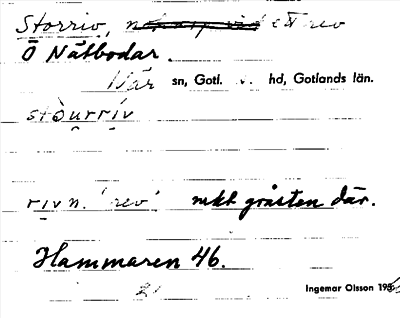 Storriv, ett rev
Ö Nätbodar.
När sn, Gotl. hd, Gotlands län.
stòurrív
riv n. 'rev' mkt gråsten där.
Hammaren 46.
21 Ingemar Olsson 195